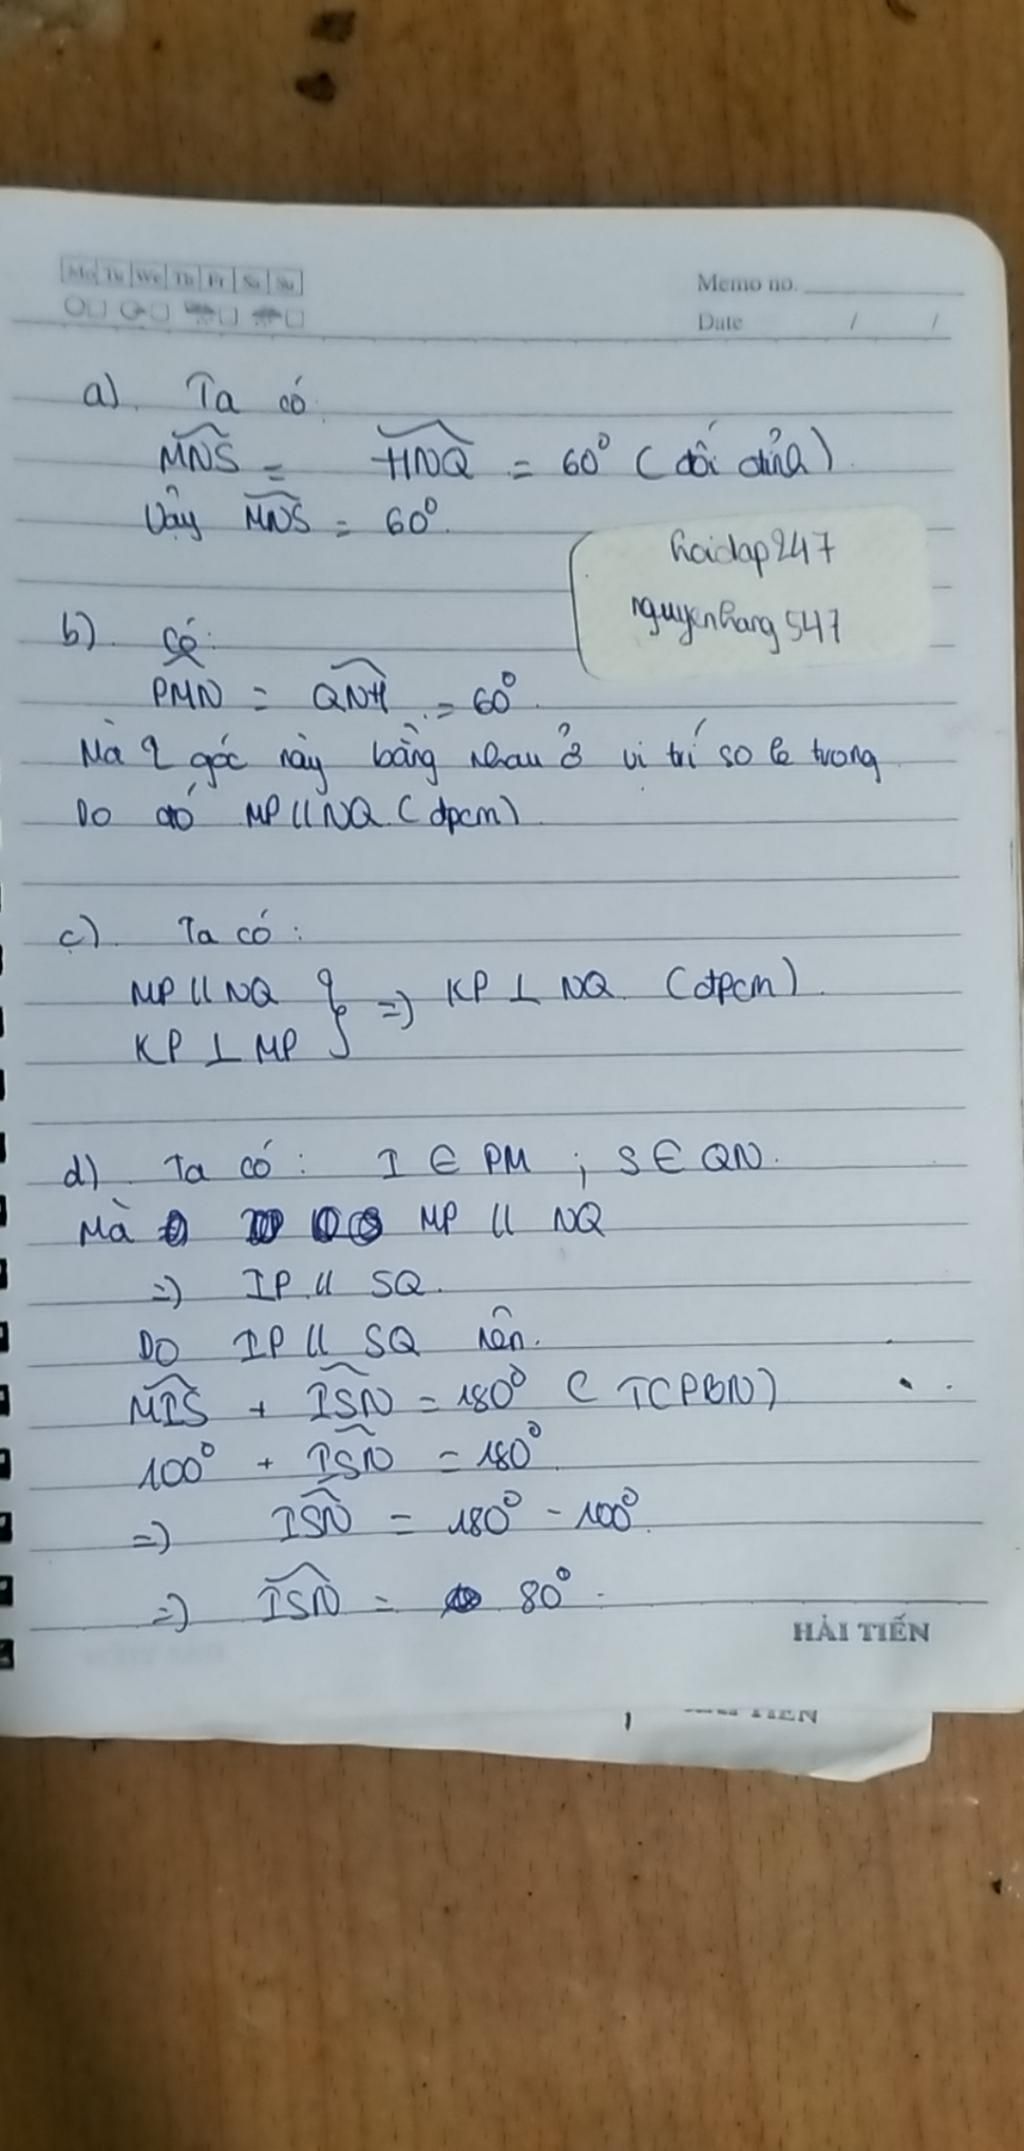 Mo Tu We Th Fr Sa Su
Memo no.
Date / /
a). Ta có
MNS = HNQ = 60° (đối đỉnh)
Vậy MNS = 60°.
hoidap247
nguyenhang547
b). Có:
PMN = QNH = 60°.
Mà 2 góc này bằng nhau ở vị trí so le trong
Do đó MP // NQ (đpcm)
c). Ta có:
MP // NQ } => KP ⊥ NQ (đpcm).
KP ⊥ MP
d). Ta có: I ∈ PM ; S ∈ QN.
Mà MP // NQ
=> IP // SQ.
Do IP // SQ nên.
MIS + ISN = 180° (TCPBN)
100° + ISN = 180°.
=> ISN = 180° - 100°.
=> ISN = 80°.
HẢI TIẾN
TIẾN